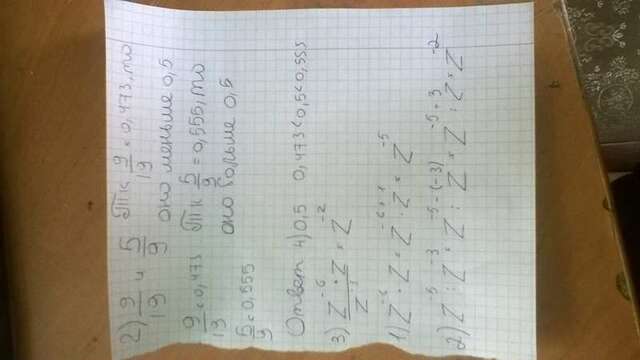 2) 9/19 и 5/9 Т.к 9/19 = 0,473, то
оно меньше 0,5
9/19 = 0,473 Т.к 5/9 = 0,555, то
5/9 = 0,555 оно больше 0,5
Ответ 4) 0,5 0,473 < 0,5 < 0,555
3) Z⁻⁶ · Z / Z⁻³ = Z⁻²
1) Z⁻⁶ · Z = Z⁻⁶⁺¹ = Z⁻⁵
2) Z⁻⁵ : Z⁻³ = Z⁻⁵⁻⁽⁻³⁾ = Z⁻⁵⁺³ = Z⁻²